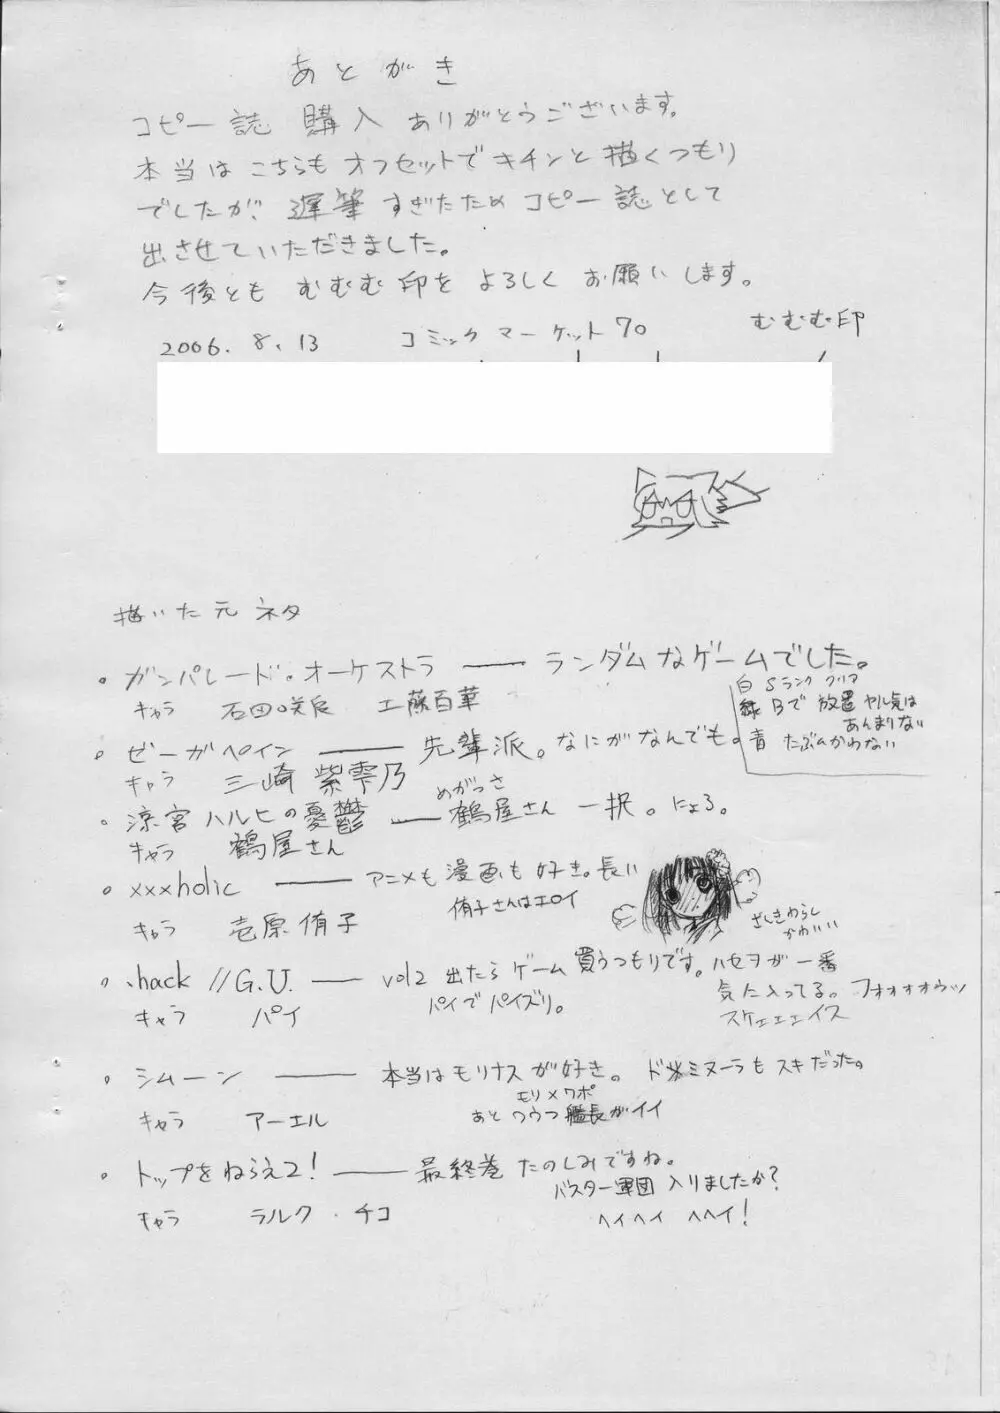 あとがき
コピー誌 購入 ありがとうございます。
本当は こちらも オフセットで キチンと 描くつもり
でしたが、遅筆 すぎたため コピー誌として
出させていただきました。
今後とも むむむ印を よろしく お願いします。
2006.8.13 コミックマーケット70 むむむ印
描いた元ネタ
・ガンパレード・オーケストラ ―― ランダムなゲームでした。
白 Sランク クリア
緑 Bで 放置 ヤル気は
あんまりない
青 たぶんかわない
キャラ 石田咲良 工藤百華
・ゼーガペイン ―― 先輩派。なにがなんでも。
キャラ 三崎 紫雫乃
・涼宮ハルヒの憂鬱 ―― 鶴屋さん 一択。にょろ。
めがっさ
キャラ 鶴屋さん
・xxxholic ―― アニメも 漫画も 好き。長い
侑子さんはエロイ
ざしきわらし
かわいい
キャラ 壱原 侑子
・.hack//G.U. ―― vol2 出たら ゲーム 買うつもりです。ハセヲが 一番
気に入ってる。フォォォォウッ
スケェェェイス
パイで パイズリ。
キャラ パイ
・シムーン ―― 本当は モリナスが 好き。ドミヌーラも スキだった。
モリ×ワポ
あと ワウフ 艦長が イイ
キャラ アーエル
・トップをねらえ2! ―― 最終巻 たのしみですね。
バスター軍団 入りましたか?
ヘイヘイ ヘヘイ!
キャラ ラルク・チコ